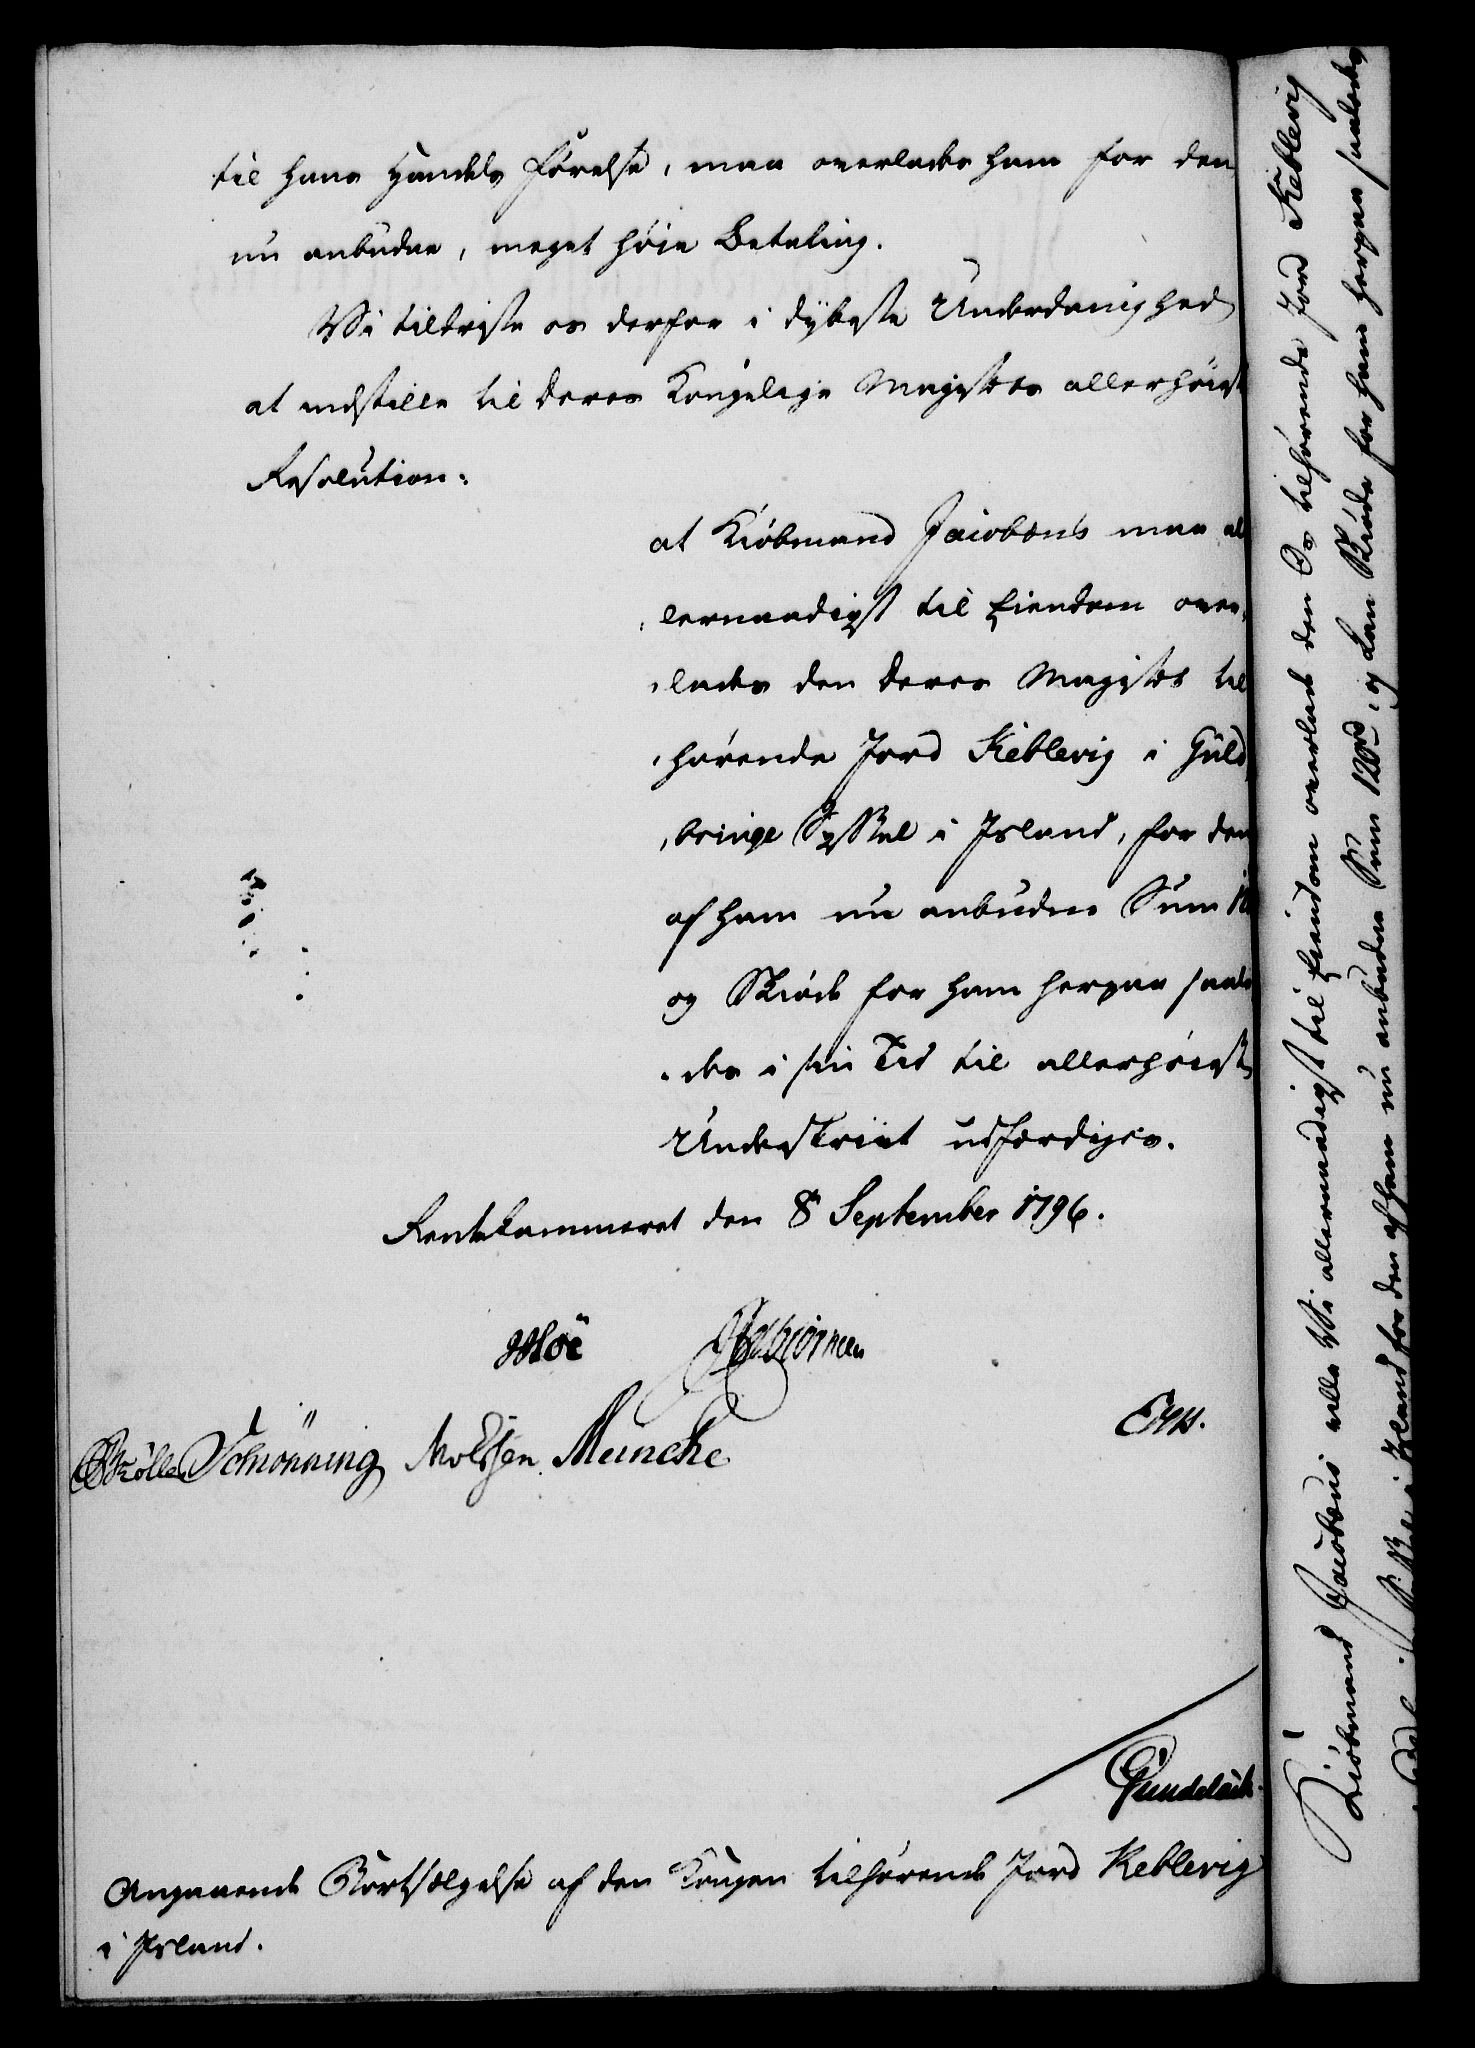 til hans Handels Førelse, maa overlades ham for den
nu anbudne, meget høie Betaling.
Vi tildriste os derfor i dybeste Underdanighed
at indstille til Deres Kongelige Majestets allerhøiest
Resolution:
at Kiøbmand Jacobæus maa al
lernaadigst til Eiendom over-
lades den Deres Majestet til
hørende Jord Keblevig i Guld
bringe Syssel i Island, for den
af ham nu anbudne Sum
og Skiøde for ham herpaa saale
des i sin Tid til allerhøieste
Underskrivt udfærdiges.
Rentekammeret den 8 September 1796.
Moe
Schiønning Müncke
Gundelach.
Angaaende Bortsælgelse af den Kongen tilhørende Jord Keblevig
i Island.
Kiøbmand Jacobæus ville Vi allernaadigst til Eiendom overlade den Os tilhørende Jord Keblevig
i Island for den af ham nu anbudne Sum 120 rd, og kan Skiøde for ham herpaa saaledes